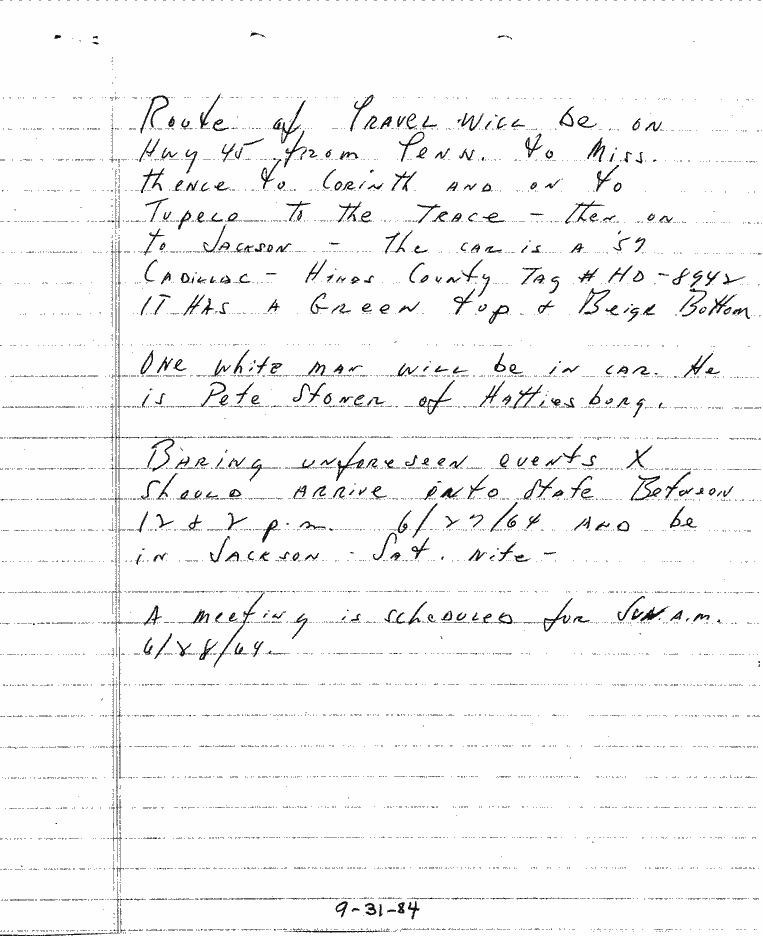 Route of Travel will be on
Hwy 45 from Tenn. to Miss.
thence to Corinth and on to
Tupelo to the Trace - then on
to Jackson - the car is a '59
Cadillac - Hinds County Tag # HD-8942
It has a Green top & Beige Bottom
One white man will be in car. He
is Pete Stoner of Hattiesburg.
Baring unforeseen events X
should arrive into State Between
12 & 2 p.m. 6/27/64 and be
in Jackson - Sat. Nite -
A meeting is scheduled for Sun. A.M.
6/28/64.
9-31-84